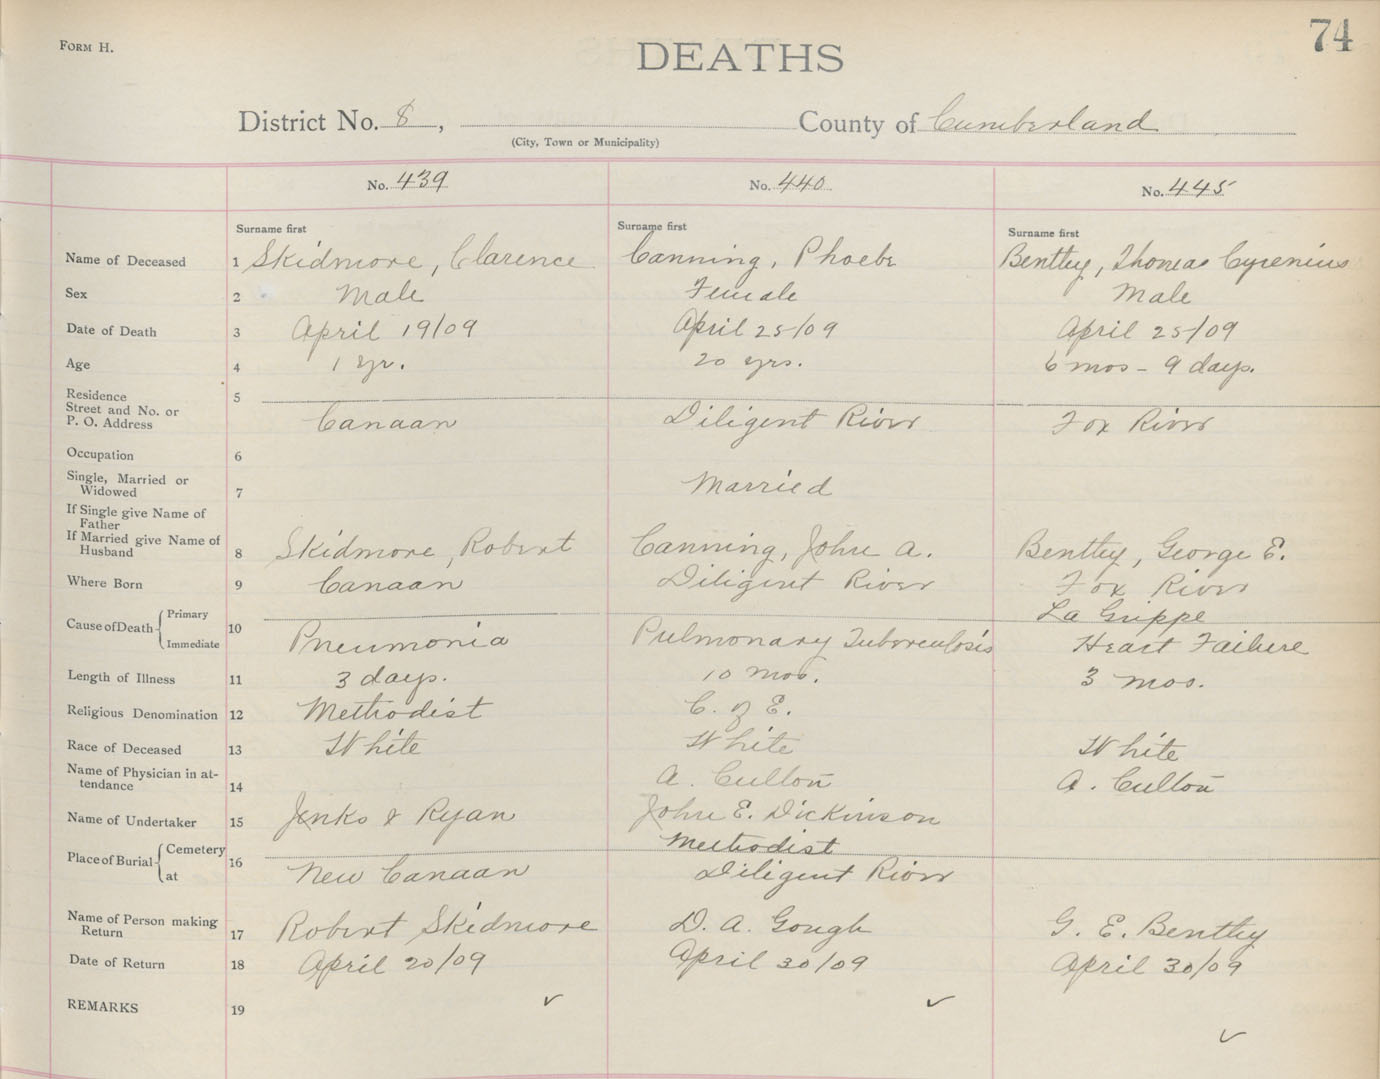 74
FORM H.
DEATHS
District No. 8, County of Cumberland
(City, Town or Municipality)
No. 439 No. 440 No. 445
Surname first Surname first Surname first
Name of Deceased 1 Skidmore, Clarence Canning, Phoebe Bentley, Thomas Cyrenius
Sex 2 Male Female Male
Date of Death 3 April 19/09 April 25/09 April 25/09
Age 4 1 yr. 20 yrs. 6 mos - 9 days.
Residence 5
Street and No. or
P. O. Address Canaan Diligent River Fox River
Occupation 6
Single, Married or
Widowed 7 Married
If Single give Name of
Father
If Married give Name of
Husband 8 Skidmore, Robert Canning, John A. Bentley, George E.
Where Born 9 Canaan Diligent River Fox River
Cause of Death Primary 10 La Grippe
Immediate Pneumonia Pulmonary Tuberculosis Heart Failure
Length of Illness 11 3 days. 10 mos. 3 mos.
Religious Denomination 12 Methodist C. of E.
Race of Deceased 13 White White White
Name of Physician in at-
tendance 14 A. Cullon A. Cullon
Name of Undertaker 15 Jenks & Ryan John E. Dickinson
Place of Burial Cemetery 16 Methodist
at New Canaan Diligent River
Name of Person making
Return 17 Robert Skidmore D. A. Gough G. E. Bentley
Date of Return 18 April 20/09 April 30/09 April 30/09
REMARKS 19 ✓ ✓ ✓